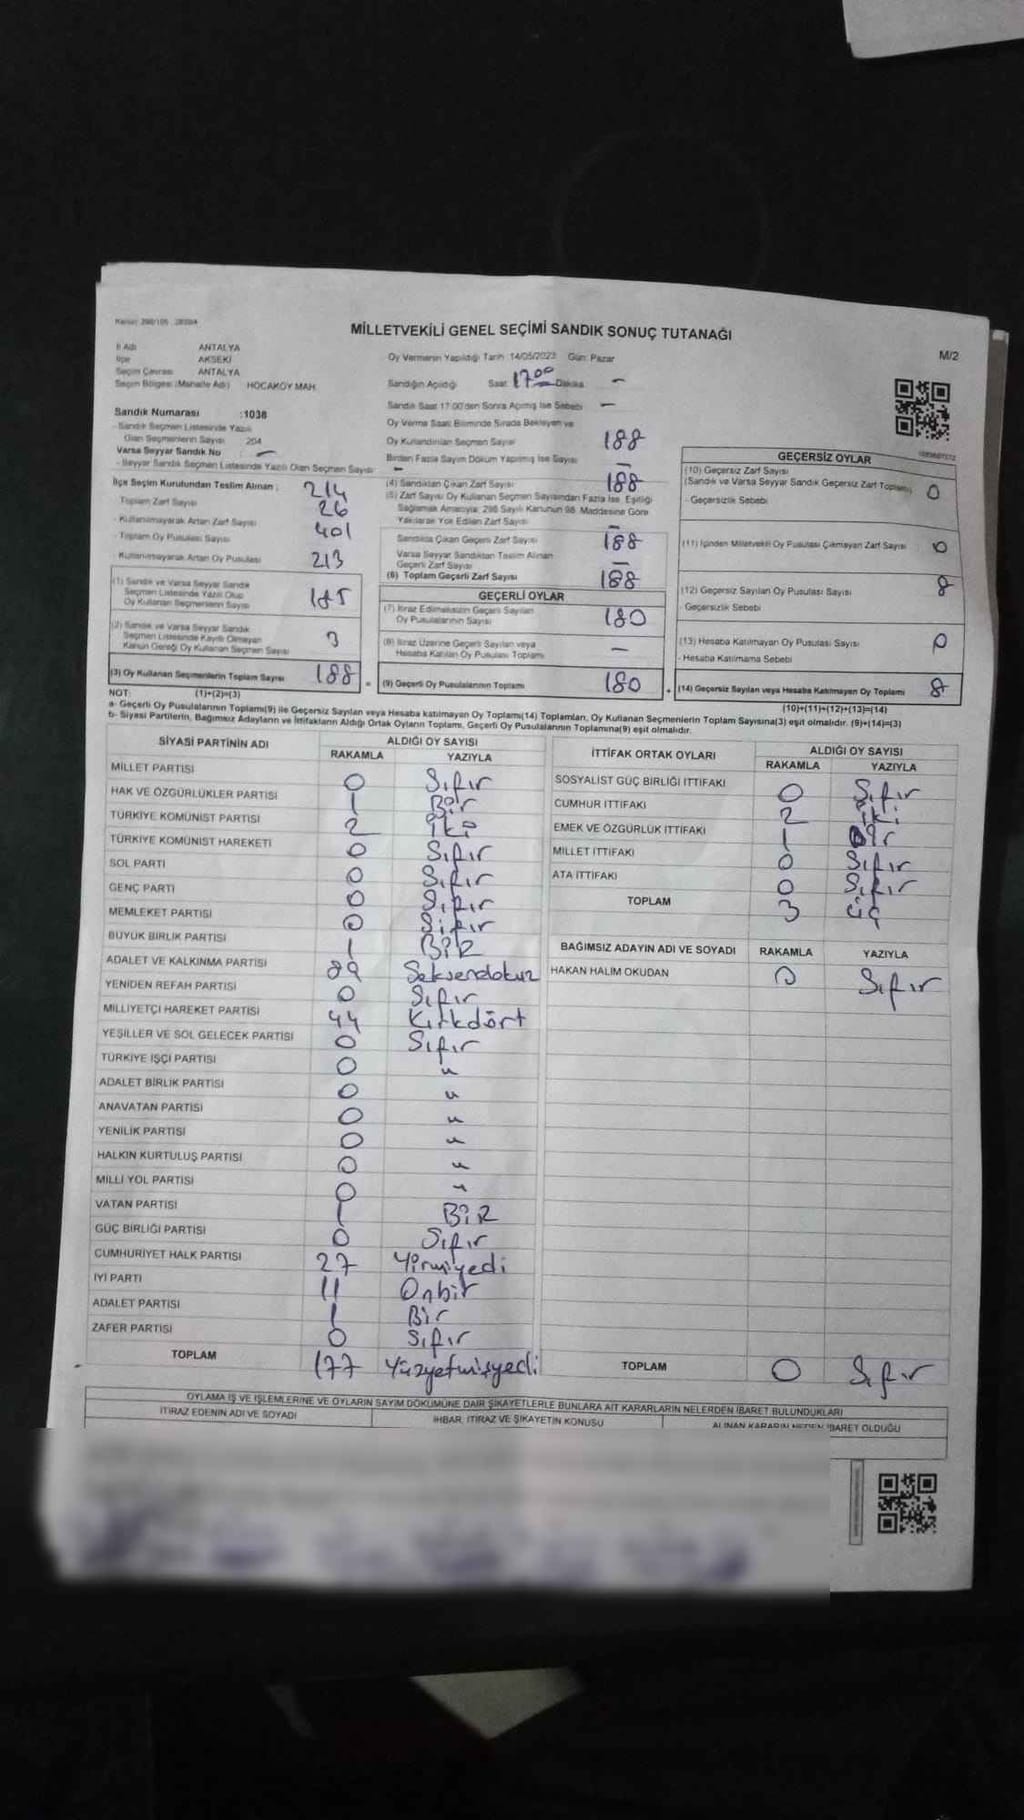 MİLLETVEKİLİ GENEL SEÇİMİ SANDIK SONUÇ TUTANAĞI
M/2
İl Adı ANTALYA
İlçe AKSEKİ
Seçim Çevresi ANTALYA
Seçim Bölgesi (Mahalle Adı) HOCAKÖY MAH.
Oy Vermenin Yapıldığı Tarih 14/05/2023 Gün: Pazar
Sandığın Açıldığı Saat 17 00 Dakika –
Sandık Saat 17:00'den Sonra Açılmış İse Sebebi –
Sandık Numarası :1038
- Sandık Seçmen Listesinde Yazılı
Olan Seçmenlerin Sayısı 204
Varsa Seyyar Sandık No –
- Seyyar Sandık Seçmen Listesinde Yazılı Olan Seçmen Sayısı
İlçe Seçim Kurulundan Teslim Alınan :
Toplam Zarf Sayısı 214
- Kullanılmayarak Artan Zarf Sayısı 26
- Toplam Oy Pusulası Sayısı 401
- Kullanılmayarak Artan Oy Pusulası 213
(1) Sandık ve Varsa Seyyar Sandık
Seçmen Listesinde Yazılı Olup
Oy Kullanan Seçmenlerin Sayısı 185
(2) Sandık ve Varsa Seyyar Sandık
Seçmen Listesinde Kayıtlı Olmayan
Kanun Gereği Oy Kullanan Seçmen Sayısı 3
(3) Oy Kullanan Seçmenlerin Toplam Sayısı 188
Oy Verme Saati Bitiminde Sırada Bekleyen ve
Oy Kullandırılan Seçmen Sayısı 188
Birden Fazla Sayım Döküm Yapılmış İse Sayısı –
(4) Sandıktan Çıkan Zarf Sayısı 188
(5) Zarf Sayısı Oy Kullanan Seçmen Sayısından Fazla İse, Eşitliği
Sağlamak Amacıyla, 298 Sayılı Kanunun 98. Maddesine Göre
Yakılarak Yok Edilen Zarf Sayısı –
Sandıkta Çıkan Geçerli Zarf Sayısı 188
Varsa Seyyar Sandıktan Teslim Alınan
Geçerli Zarf Sayısı –
(6) Toplam Geçerli Zarf Sayısı 188
GEÇERLİ OYLAR
(7) İtiraz Edilmeksizin Geçerli Sayılan
Oy Pusulalarının Sayısı 180
(8) İtiraz Üzerine Geçerli Sayılan veya
Hesaba Katılan Oy Pusulası Toplamı –
(9) Geçerli Oy Pusulalarının Toplamı 180
GEÇERSİZ OYLAR
(10) Geçersiz Zarf Sayısı
(Sandık ve Varsa Seyyar Sandık Geçersiz Zarf Toplamı) 0
- Geçersizlik Sebebi
(11) İçinden Milletvekili Oy Pusulası Çıkmayan Zarf Sayısı 0
(12) Geçersiz Sayılan Oy Pusulası Sayısı 8
- Geçersizlik Sebebi
(13) Hesaba Katılmayan Oy Pusulası Sayısı 0
- Hesaba Katılmama Sebebi
(14) Geçersiz Sayılan veya Hesaba Katılmayan Oy Toplamı 8
NOT: (1)+(2)=(3)
(10)+(11)+(12)+(13)=(14)
a- Geçerli Oy Pusulalarının Toplamı(9) ile Geçersiz Sayılan veya Hesaba katılmayan Oy Toplamı(14) Toplamları, Oy Kullanan Seçmenlerin Toplam Sayısına(3) eşit olmalıdır. (9)+(14)=(3)
b- Siyasi Partilerin, Bağımsız Adayların ve İttifakların Aldığı Ortak Oyların Toplamı, Geçerli Oy Pusulalarının Toplamına(9) eşit olmalıdır.
SİYASİ PARTİNİN ADI ALDIĞI OY SAYISI
RAKAMLA YAZIYLA
MİLLET PARTİSİ 0 Sıfır
HAK VE ÖZGÜRLÜKLER PARTİSİ 1 Bir
TÜRKİYE KOMÜNİST PARTİSİ 2 İki
TÜRKİYE KOMÜNİST HAREKETİ 0 Sıfır
SOL PARTİ 0 Sıfır
GENÇ PARTİ 0 Sıfır
MEMLEKET PARTİSİ 0 Sıfır
BÜYÜK BİRLİK PARTİSİ 1 BİR
ADALET VE KALKINMA PARTİSİ 89 Seksendokuz
YENİDEN REFAH PARTİSİ 0 Sıfır
MİLLİYETÇİ HAREKET PARTİSİ 44 Kırkdört
YEŞİLLER VE SOL GELECEK PARTİSİ 0 Sıfır
TÜRKİYE İŞÇİ PARTİSİ 0 "
ADALET BİRLİK PARTİSİ 0 "
ANAVATAN PARTİSİ 0 "
YENİLİK PARTİSİ 0 "
HALKIN KURTULUŞ PARTİSİ 0 "
MİLLİ YOL PARTİSİ 0 "
VATAN PARTİSİ 1 BİR
GÜÇ BİRLİĞİ PARTİSİ 0 Sıfır
CUMHURİYET HALK PARTİSİ 27 Yirmiyedi
İYİ PARTİ 11 Onbir
ADALET PARTİSİ 1 Bir
ZAFER PARTİSİ 0 Sıfır
TOPLAM 177 Yüzyetmişyedi
İTTİFAK ORTAK OYLARI ALDIĞI OY SAYISI
RAKAMLA YAZIYLA
SOSYALİST GÜÇ BİRLİĞİ İTTİFAKI 0 Sıfır
CUMHUR İTTİFAKI 2 İki
EMEK VE ÖZGÜRLÜK İTTİFAKI 1 Bir
MİLLET İTTİFAKI 0 Sıfır
ATA İTTİFAKI 0 Sıfır
TOPLAM 3 Üç
BAĞIMSIZ ADAYIN ADI VE SOYADI RAKAMLA YAZIYLA
HAKAN HALİM OKUDAN 0 Sıfır
TOPLAM 0 Sıfır
OYLAMA İŞ VE İŞLEMLERİNE VE OYLARIN SAYIM DÖKÜMÜNE DAİR ŞİKAYETLERLE BUNLARA AİT KARARLARIN NELERDEN İBARET BULUNDUKLARI
İTİRAZ EDENİN ADI VE SOYADI İHBAR, İTİRAZ VE ŞİKAYETİN KONUSU ALINAN KARARIN NEDEN İBARET OLDUĞU